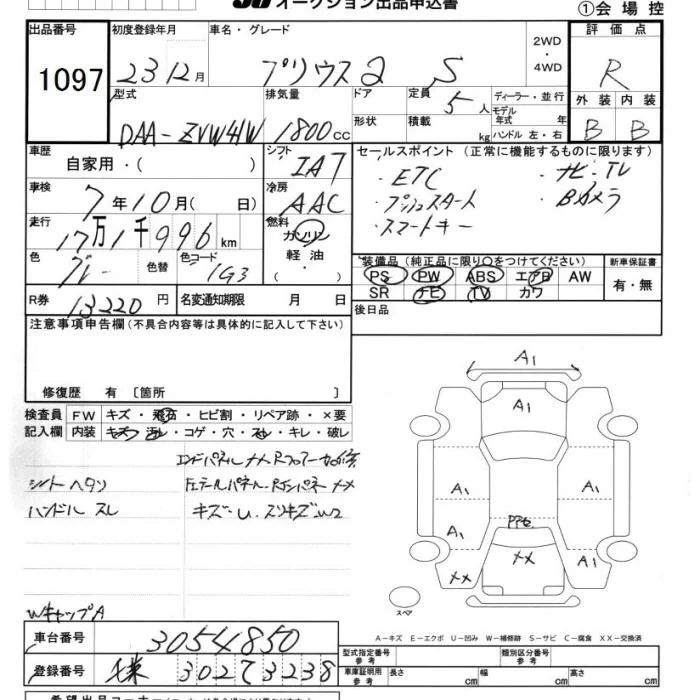 オークション出品申込書
①会場控
出品番号 1097
初度登録年月 23 12月
車名・グレード プリウスα S
2WD ・ 4WD
評価点 R
外装 B 内装 B
型式 DAA-ZVW41W
排気量 1800cc
ドア 形状
定員 5人
積載 kg
ディーラー・並行
モデル年式 年
ハンドル 左・右
車歴 自家用・( )
シフト IAT
車検 7年10月( 日)
冷房 AAC
走行 17万1千996km
燃料 ガソリン・軽油・( )
色 グレー 色替 色コード 1G3
R券 13220円
名変通知期限 月 日
セールスポイント(正常に機能するものに限ります)
・ETC ・ナビ・TV
・プッシュスタート ・Bカメラ
・スマートキー
装備品(純正品に限り○をつけてください)
PS PW ABS エアB AW
SR ナビ TV カワ
新車保証書 有・無
後日品
注意事項申告欄(不具合内容等は具体的に記入して下さい)
修復歴 有〔箇所 〕
検査員記入欄
FW キズ・飛石・ヒビ割・リペア跡・×要
内装 キズ・汚れ・コゲ・穴・スレ・キレ・破レ
シート ヘタリ
ハンドル スレ
キズ-U
WキャップA
A1
A1
A1 A1
A1 A1
××
××
スペア
A-キズ E-エクボ U-凹み W-補修跡 S-サビ C-腐食 XX-交換済
車台番号 3054850
登録番号 302 3238
型式指定番号 参考
類別区分番号 参考
車庫証明用 参考 長さ cm 幅 cm 高さ cm